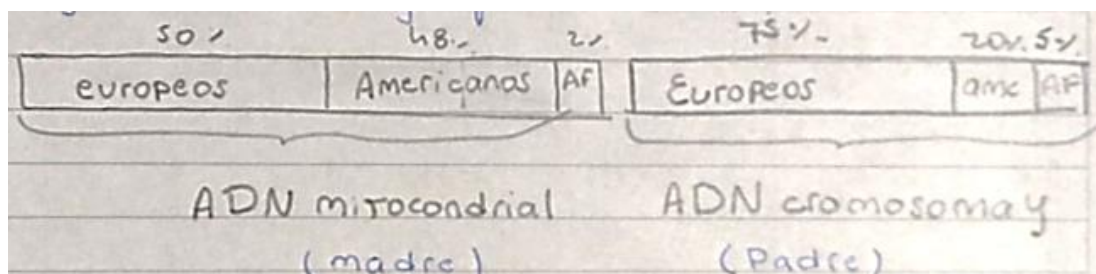 50% 48% 2% 75% 20% 5%
europeos Americanos AF Europeos ame AF
ADN mitocondrial ADN cromosoma y
(madre) (Padre)